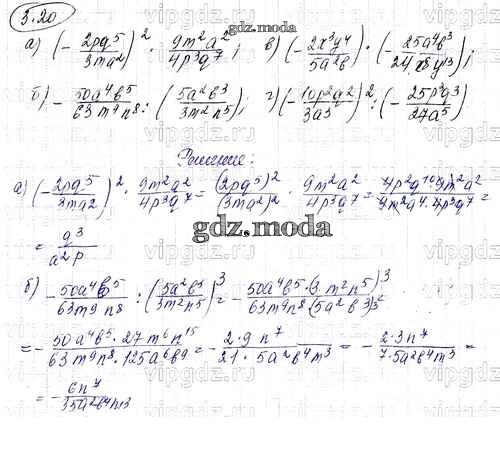 5.20
а) (- 2pq^5 / 3ma^2)^2 · 9m^2a^2 / 4p^3q^7 ; в) (- 2x^3y^4 / 5a^2b) · (- 25a^4b^3 / 24x^8y^13);
б) - 50a^4b^5 / 63m^9n^8 : (5a^2b^3 / 3m^2n^5); г) (- 10p^2q^2 / 3a^3)^2 : (- 25p^2q^3 / 27a^5)
Решение:
а) (- 2pq^5 / 3ma^2)^2 · 9m^2a^2 / 4p^3q^7 = (2pq^5)^2 / (3ma^2)^2 · 9m^2a^2 / 4p^3q^7 = 4p^2q^10 · 9m^2a^2 / 9m^2a^4 · 4p^3q^7 =
= q^3 / a^2p
gdz.moda
б) - 50a^4b^5 / 63m^9n^8 : (5a^2b^3 / 3m^2n^5)^3 = - 50a^4b^5 · (3m^2n^5)^3 / 63m^9n^8 · (5a^2b^3)^3 =
= - 50a^4b^5 · 27m^6n^15 / 63m^9n^8 · 125a^6b^9 = - 2·9n^7 / 21·5a^2b^4m^3 = - 2·3n^7 / 7·5a^2b^4m^3 =
= - 6n^7 / 35a^2b^4m^3
vipgdz.ru